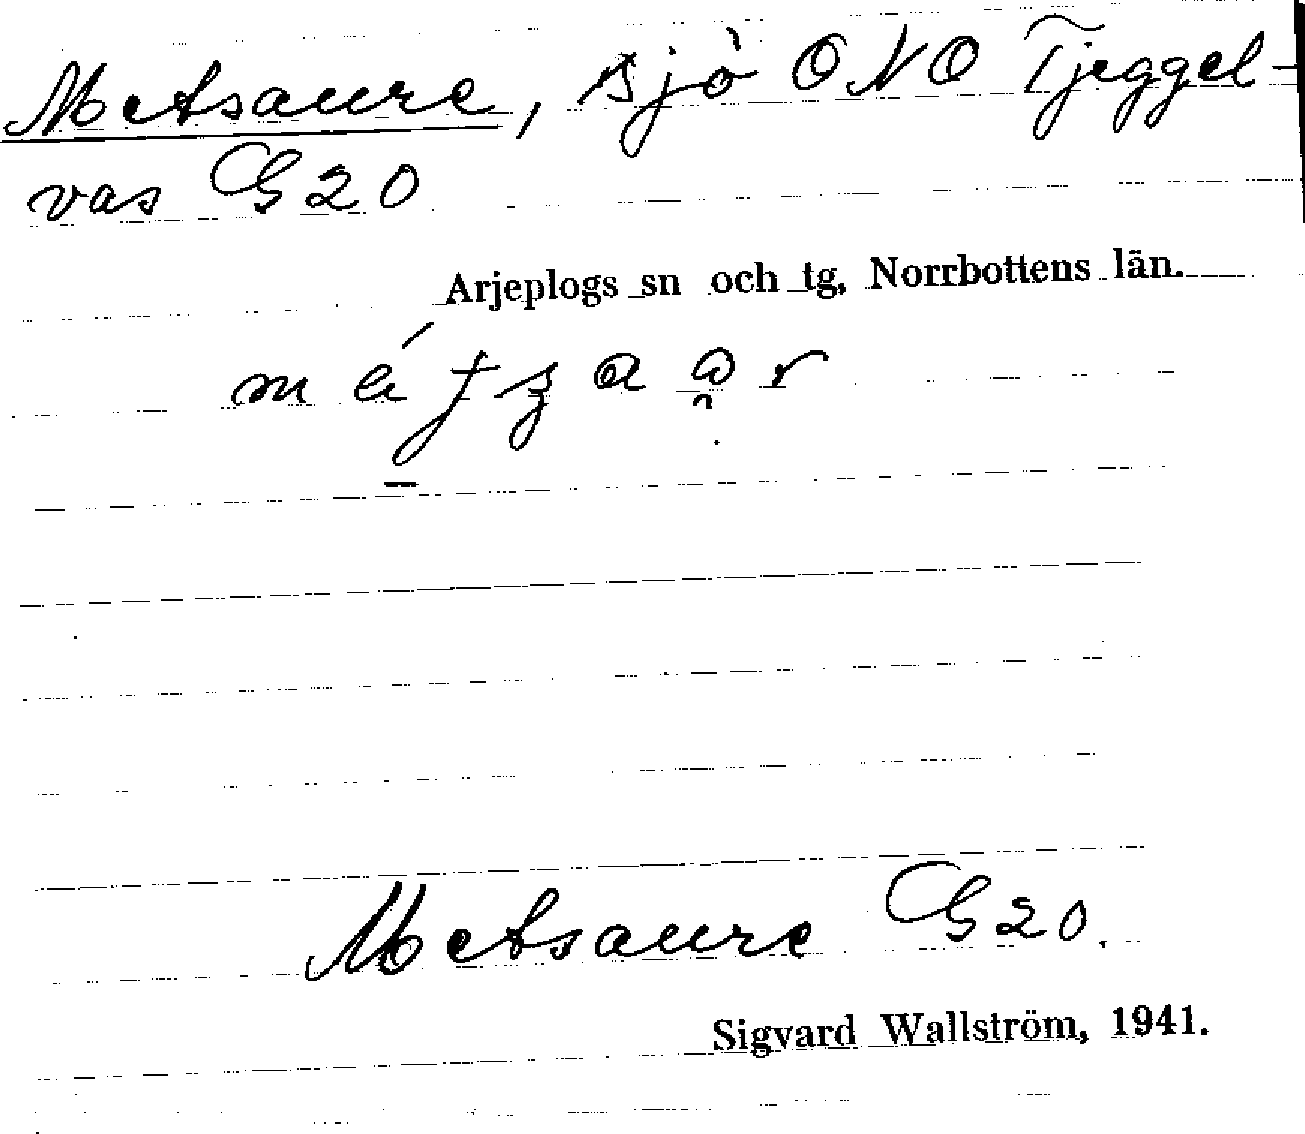 Metsaure, sjö ONO Tjeggel-
vas G20
Arjeplogs sn och tg, Norrbottens län.
Metsaure G20.
Sigvard Wallström, 1941.